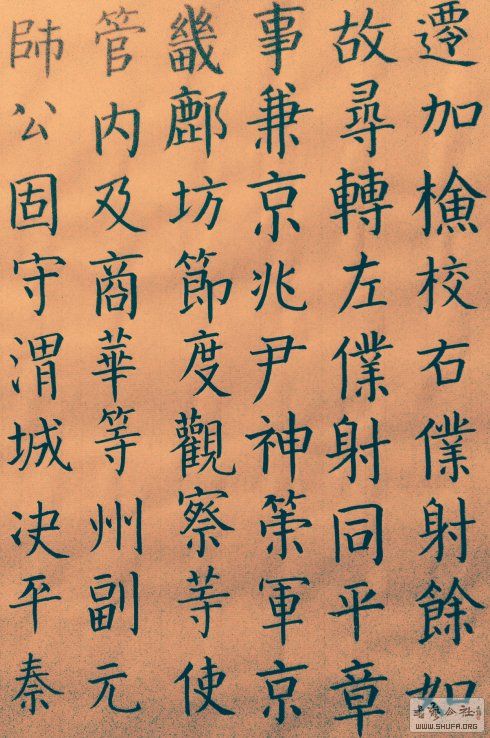 遷加檢校右僕射餘如
故尋轉左僕射同平章
事兼京兆尹神策軍京
畿鄜坊節度觀察等使
管內及商華等州副元
帥公固守渭城決平秦
書法公社
WWW.SHUFA.ORG